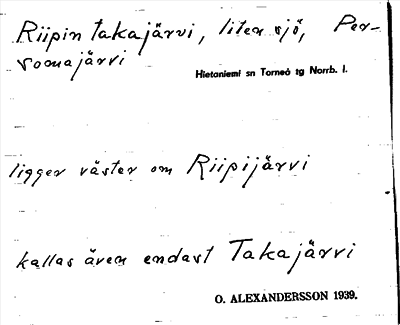 Riipin takajärvi, liten sjö, Per-
soonajärvi
Hietaniemi sn Torneå tg Norrb. l.
ligger väster om Riipijärvi
kallas även endast Takajärvi
O. ALEXANDERSSON 1939.